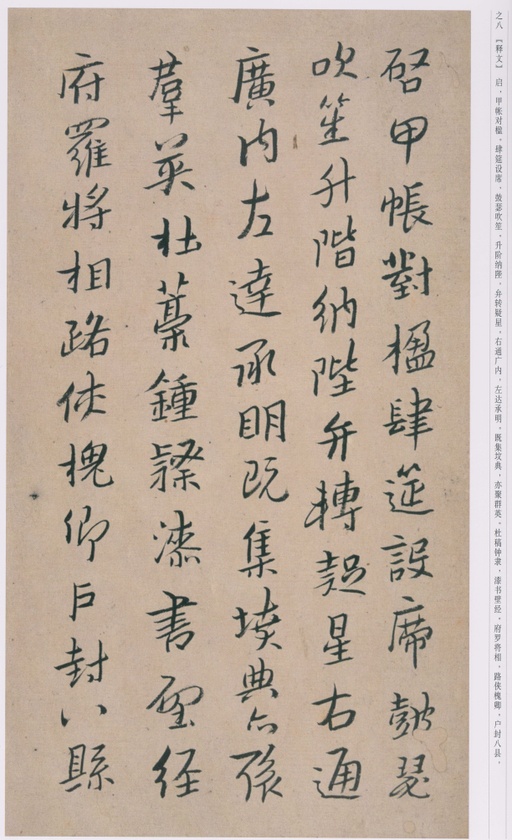 之八 【释文】 启，甲帐对楹。肆筵设席，鼓瑟吹笙。升阶纳陛，弁转疑星。右通广内，左达承明。既集坟典，亦聚群英。杜稿钟隶，漆书壁经。府罗将相，路侠槐卿。户封八县，
啓甲帳對楹肆筵設席鼓瑟
吹笙升階納陛弁轉疑星右通
廣内左達承明既集墳典亦聚
羣英杜藁鍾隸漆書壁経
府羅將相路俠槐卿户封八縣